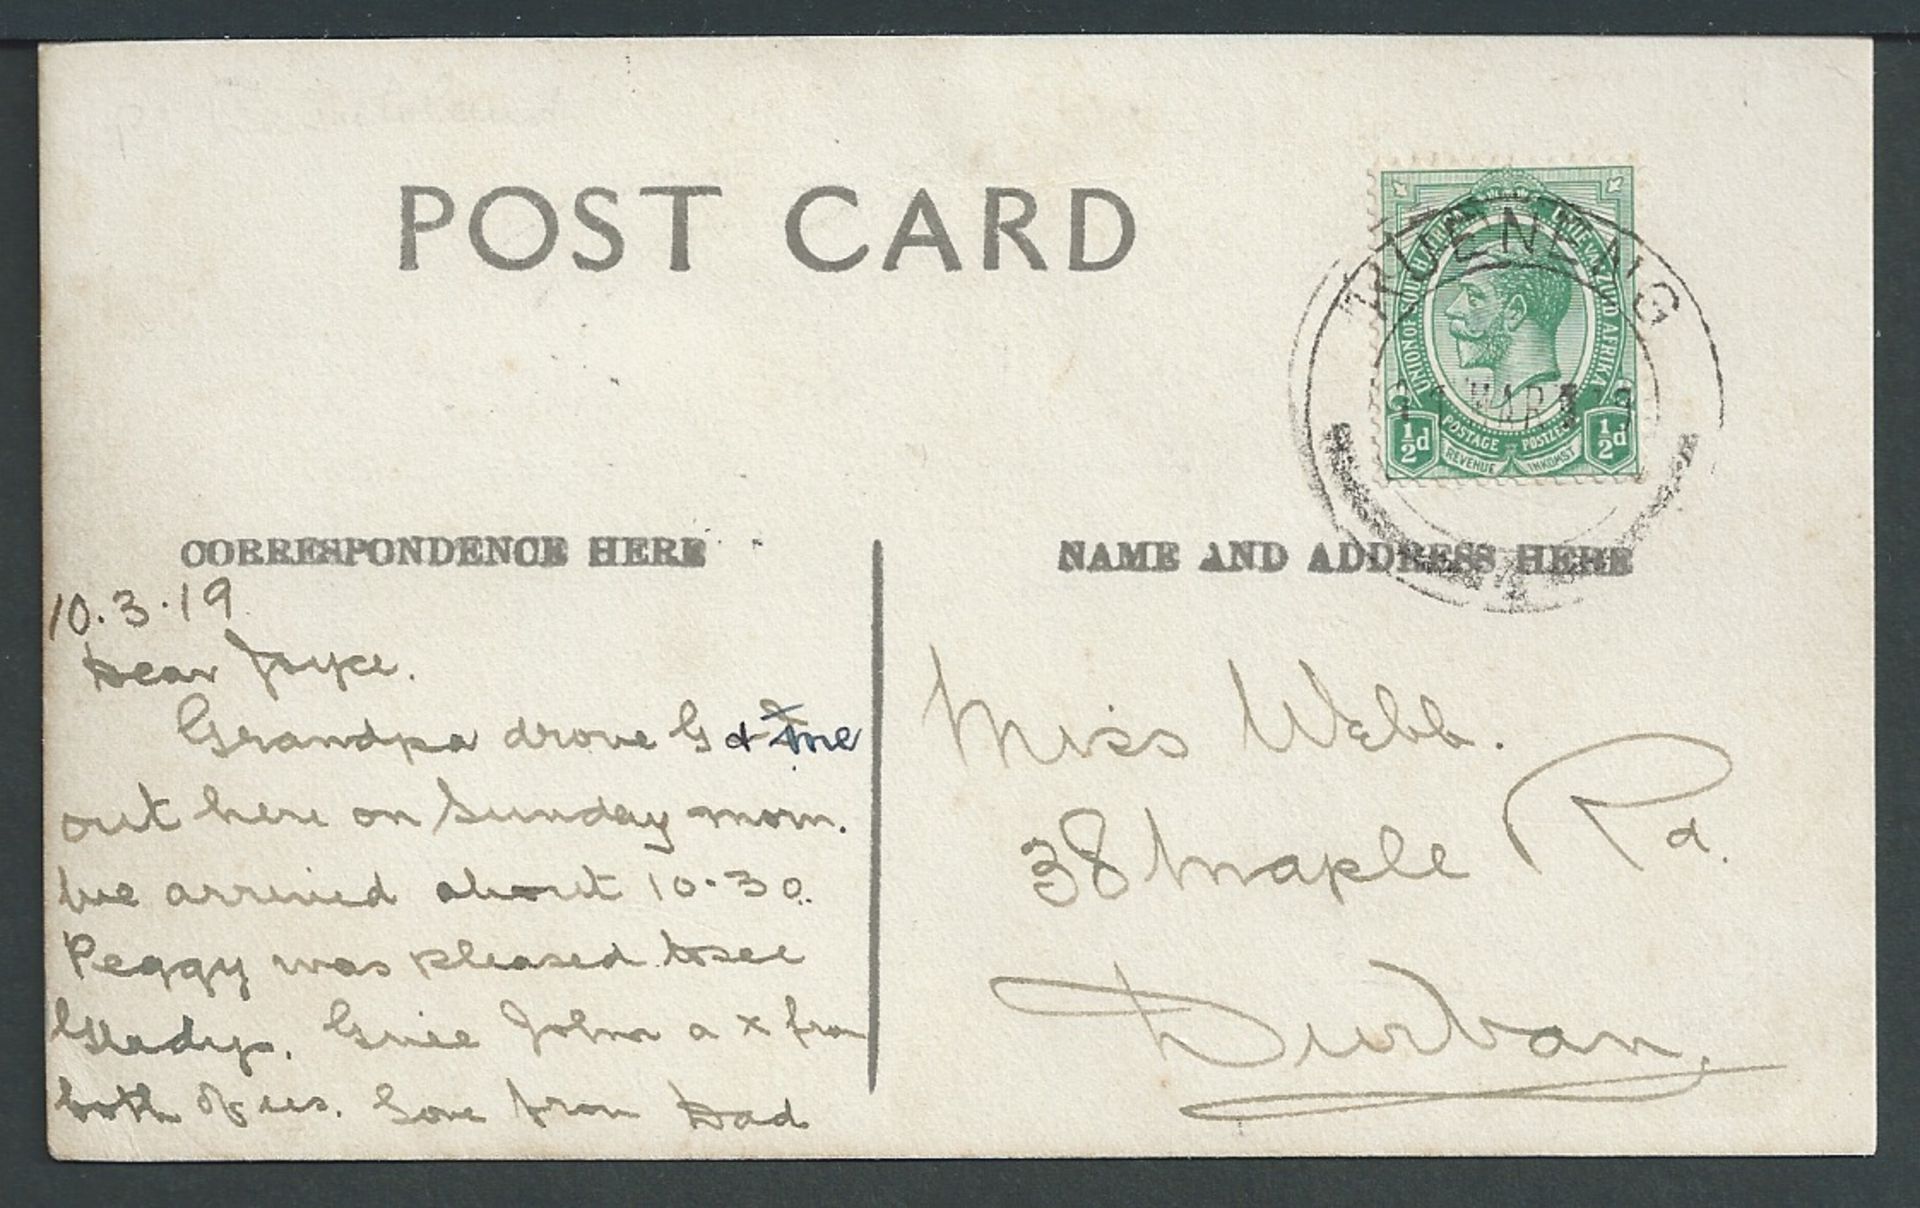 POST CARD
UNION OF SOUTH AFRICA UNIE VAN ZUID AFRIKA
11 MAR 19
½d POSTAGE POSTZEGEL ½d
REVENUE INKOMST
CORRESPONDENCE HERE
10.3.19
Dear Joyce.
Grandpa drove G & me
out here on Sunday morn.
We arrived about 10.30.
Peggy was pleased to see
Gladys. Give John a x from
both of us. Love from Dad
NAME AND ADDRESS HERE
Miss Webb.
38 Maple Rd.
Durban.